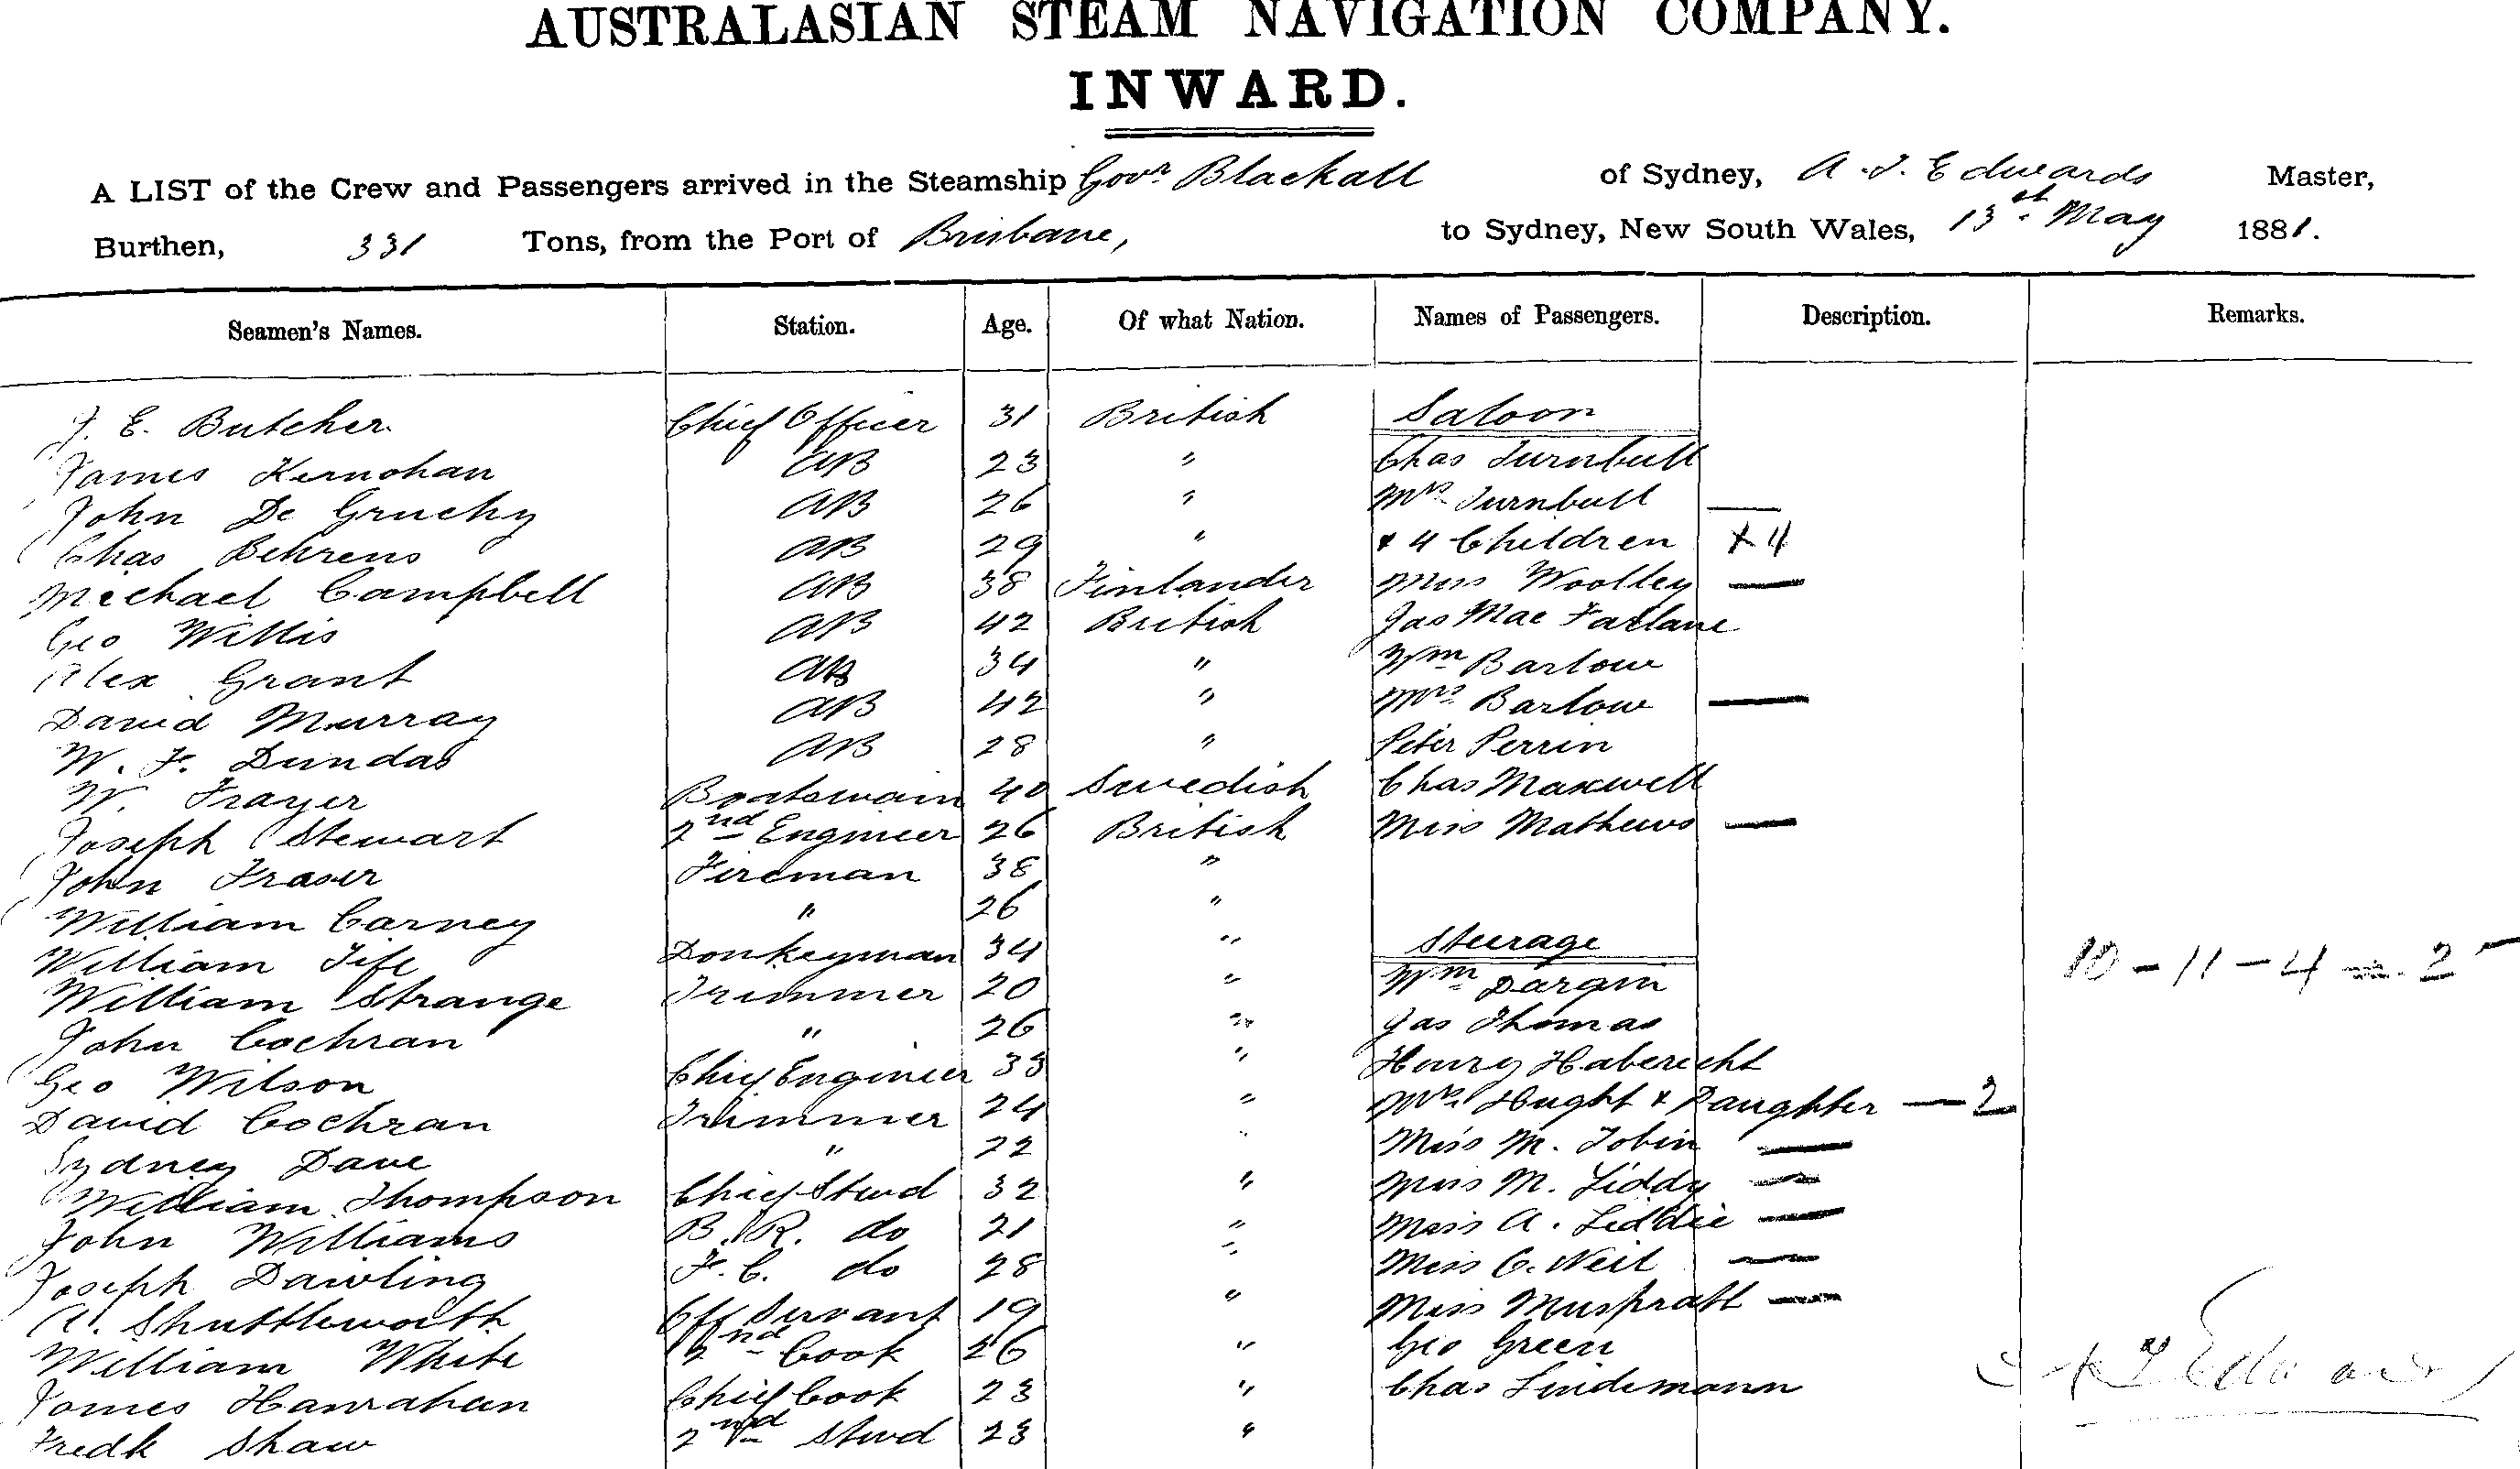 AUSTRALASIAN STEAM NAVIGATION COMPANY.
INWARD.
A LIST of the Crew and Passengers arrived in the Steamship Govr Blackall of Sydney, A. J. Edwards Master,
Burthen, 331 Tons, from the Port of Brisbane, to Sydney, New South Wales, 13th May 1881.
Seamen's Names. Station. Age. Of what Nation. Names of Passengers. Description. Remarks.
J. E. Butcher Chief Officer 31 British Saloon
James Kernohan AB 23 " Chas Turnbull
John De Gruchy AB 26 " Mrs Turnbull —
Chas Behrens AB 29 " & 4 Children × 4
Michael Campbell AB 38 Finlander Miss Woolley —
Geo Willis AB 42 British Jas Mac Farlane
Alex Grant AB 34 " Wm Barlow
David Murray AB 42 " Mrs Barlow —
W. F. Dundas AB 28 " Peter Perrin
W. Frayer Boatswain 40 Swedish Chas Maxwell
Joseph Stewart 2nd Engineer 26 British Miss Mathews —
John Fraser Fireman 38 "
William Carney " 26 "
William Fife Donkeyman 34 " Steerage
William Strange Trimmer 20 " Wm Dargin 10 – 11 – 4 = 25
John Cochran " 26 " Jas Thomas
Geo Wilson Chief Engineer 33 " Henry Haberecht
David Cochran Trimmer 24 " Mrs Hught & Daughter — 2
Sydney Dave " 22 " Miss M. Tobin —
William Thompson Chief Stewd 32 " Miss M. Liddy —
John Williams B. R. do 21 " Miss A. Liddie —
Joseph Dawling F. C. do 28 " Miss C. Neil —
A. Shuttleworth Off Servant 19 " Miss Muspratt —
William White 2nd Cook 26 " Geo Green
James Hanrahan Chief Cook 23 " Chas Lindemann
Fredk Shaw 2nd Stewd 23 "